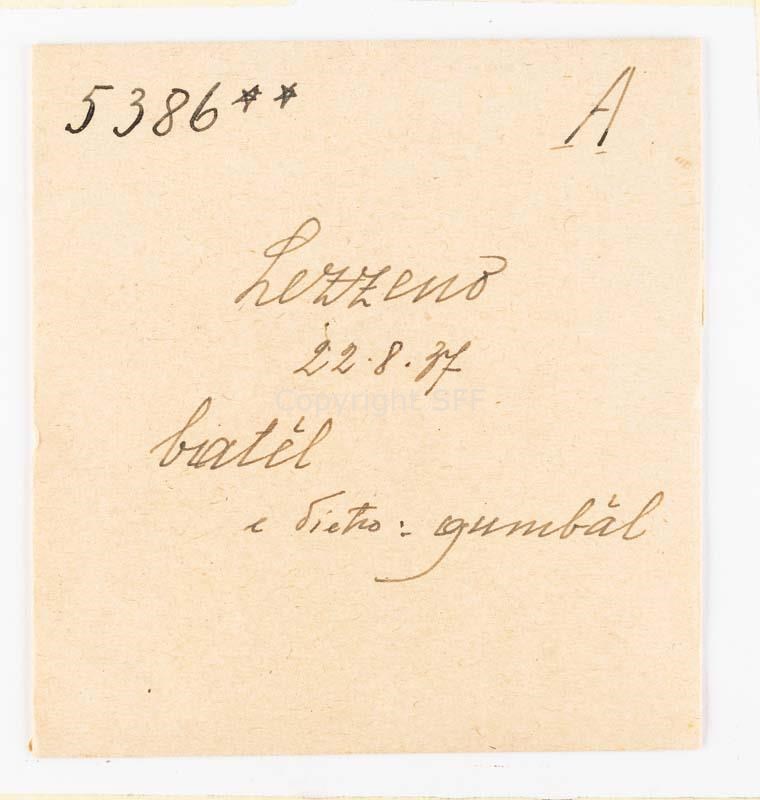 5386** A
Lezzeno
22.8.37
Copyright SFF
batèl
e dietro: gumbàl